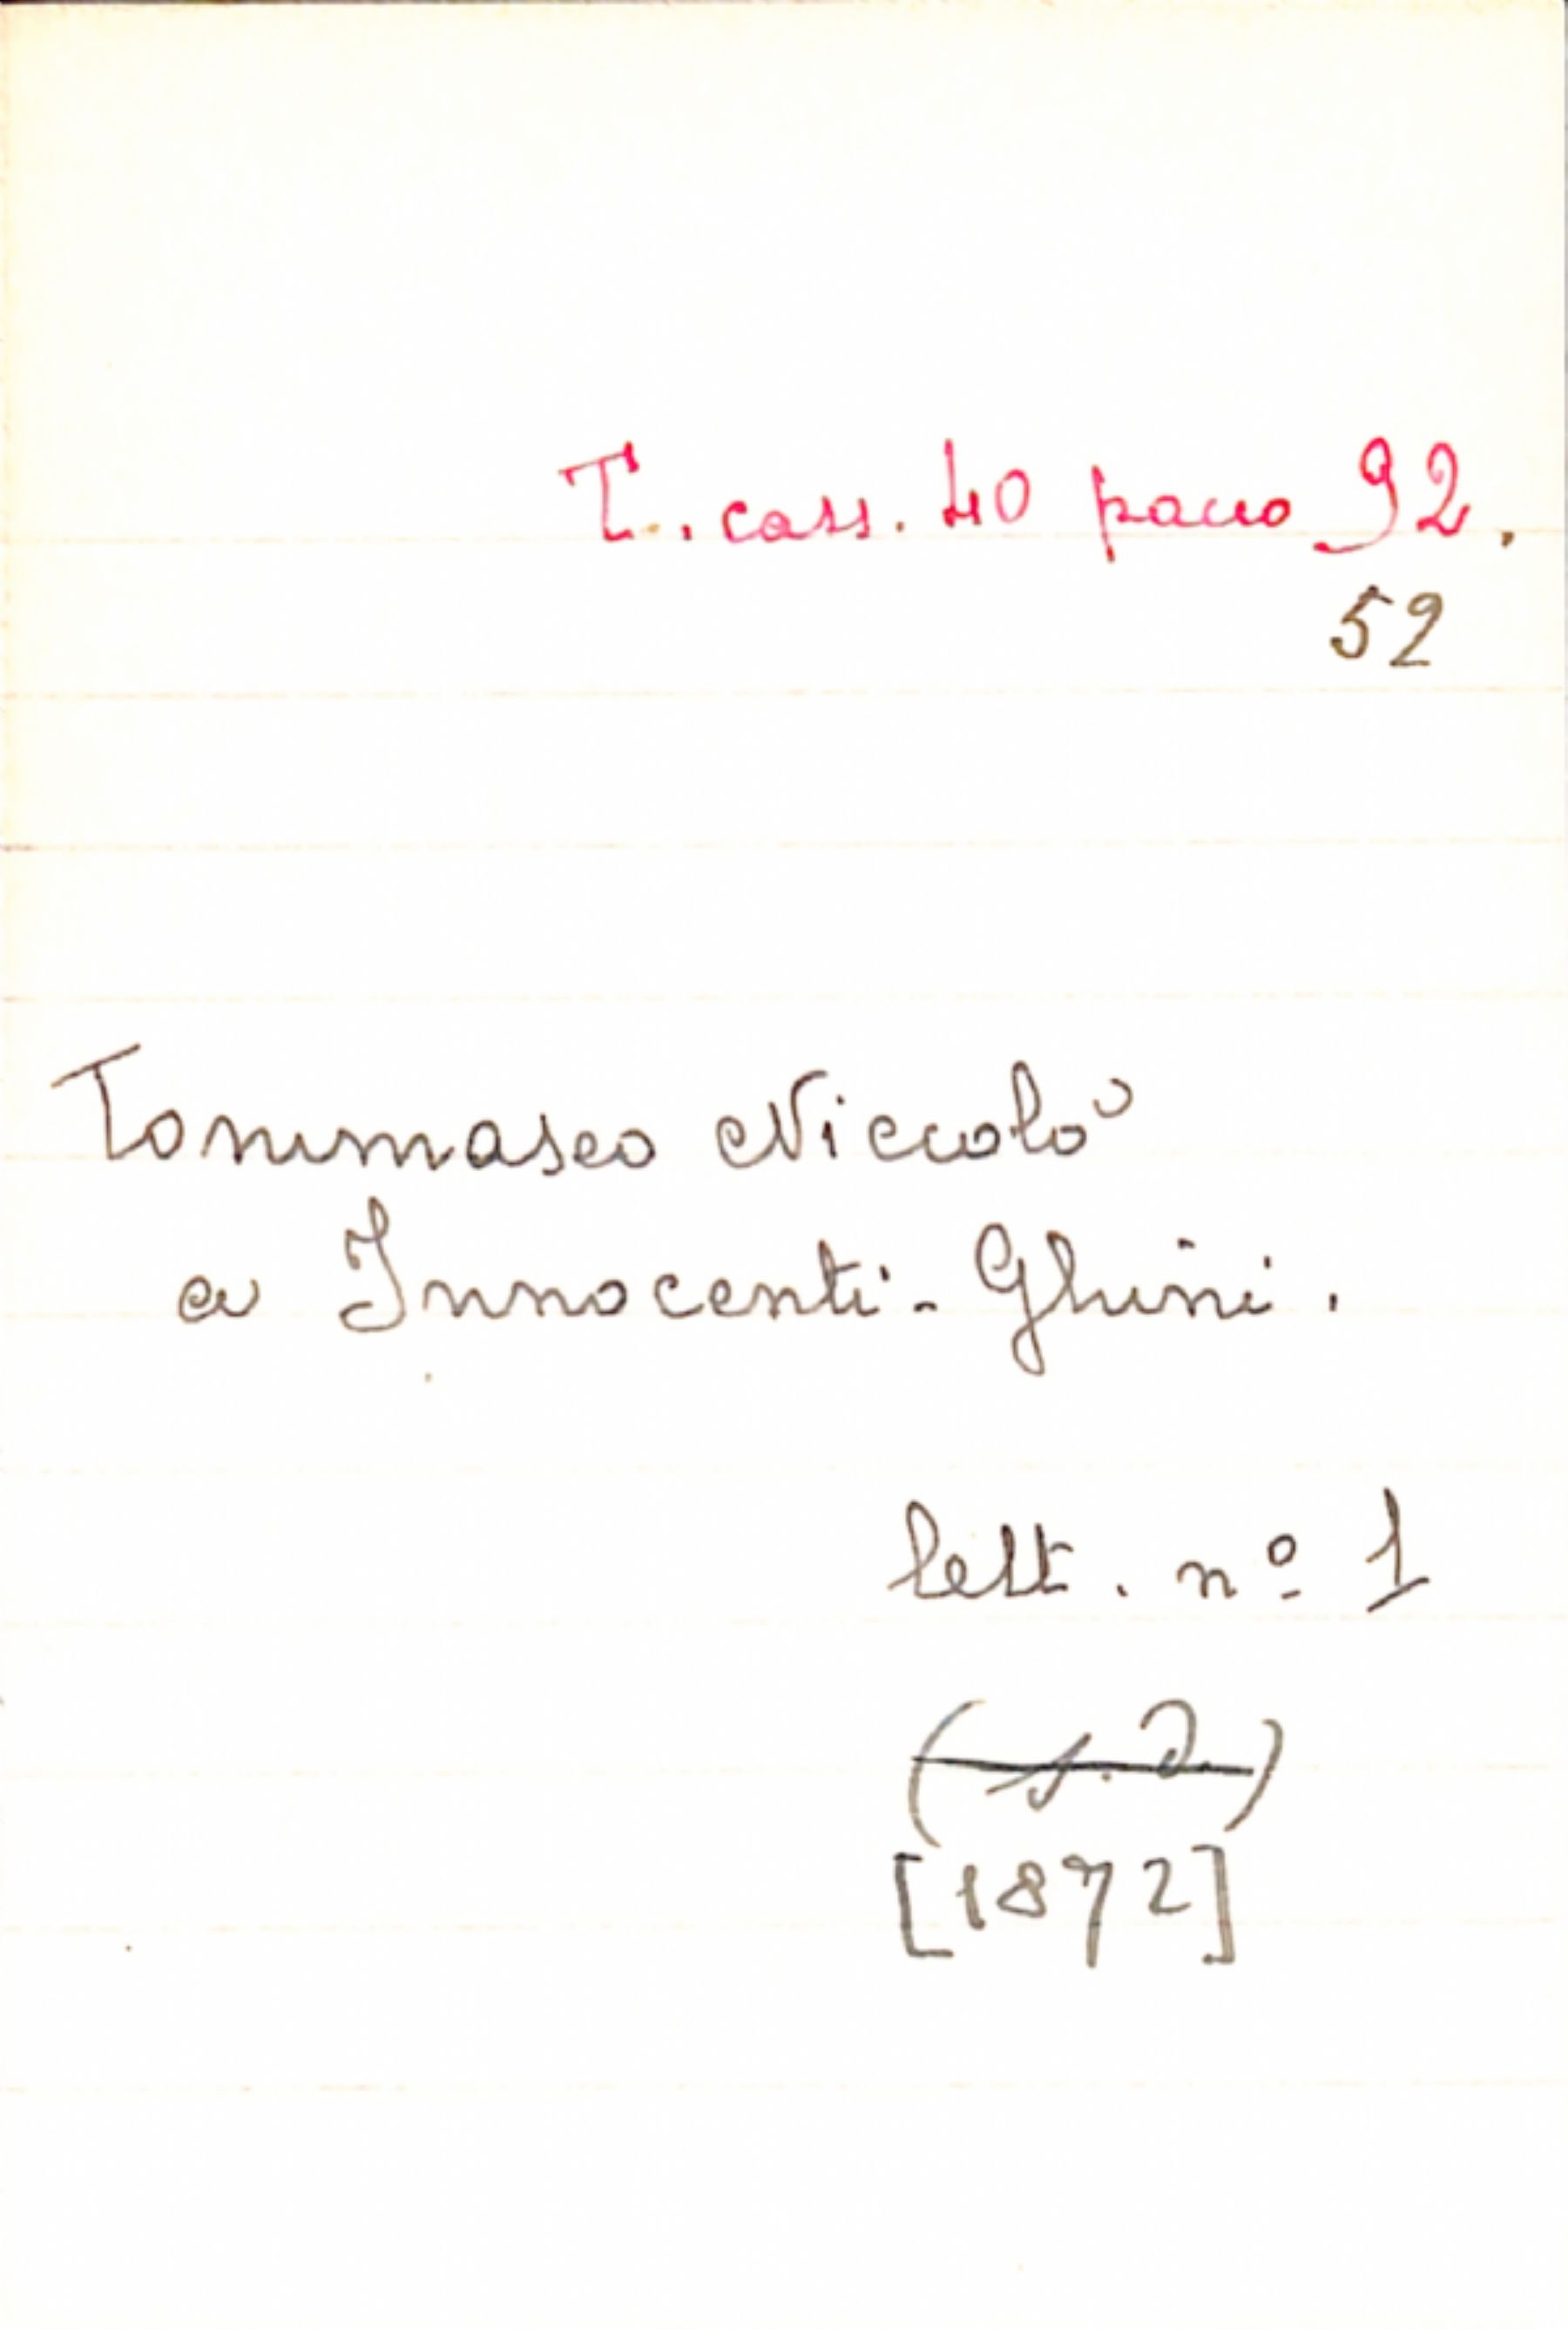 T. cass. 40 pacco 92.
52
Tommaseo Niccolò
a Innocenti-Ghini.
lett. nº 1
(s.d.)
[1872]